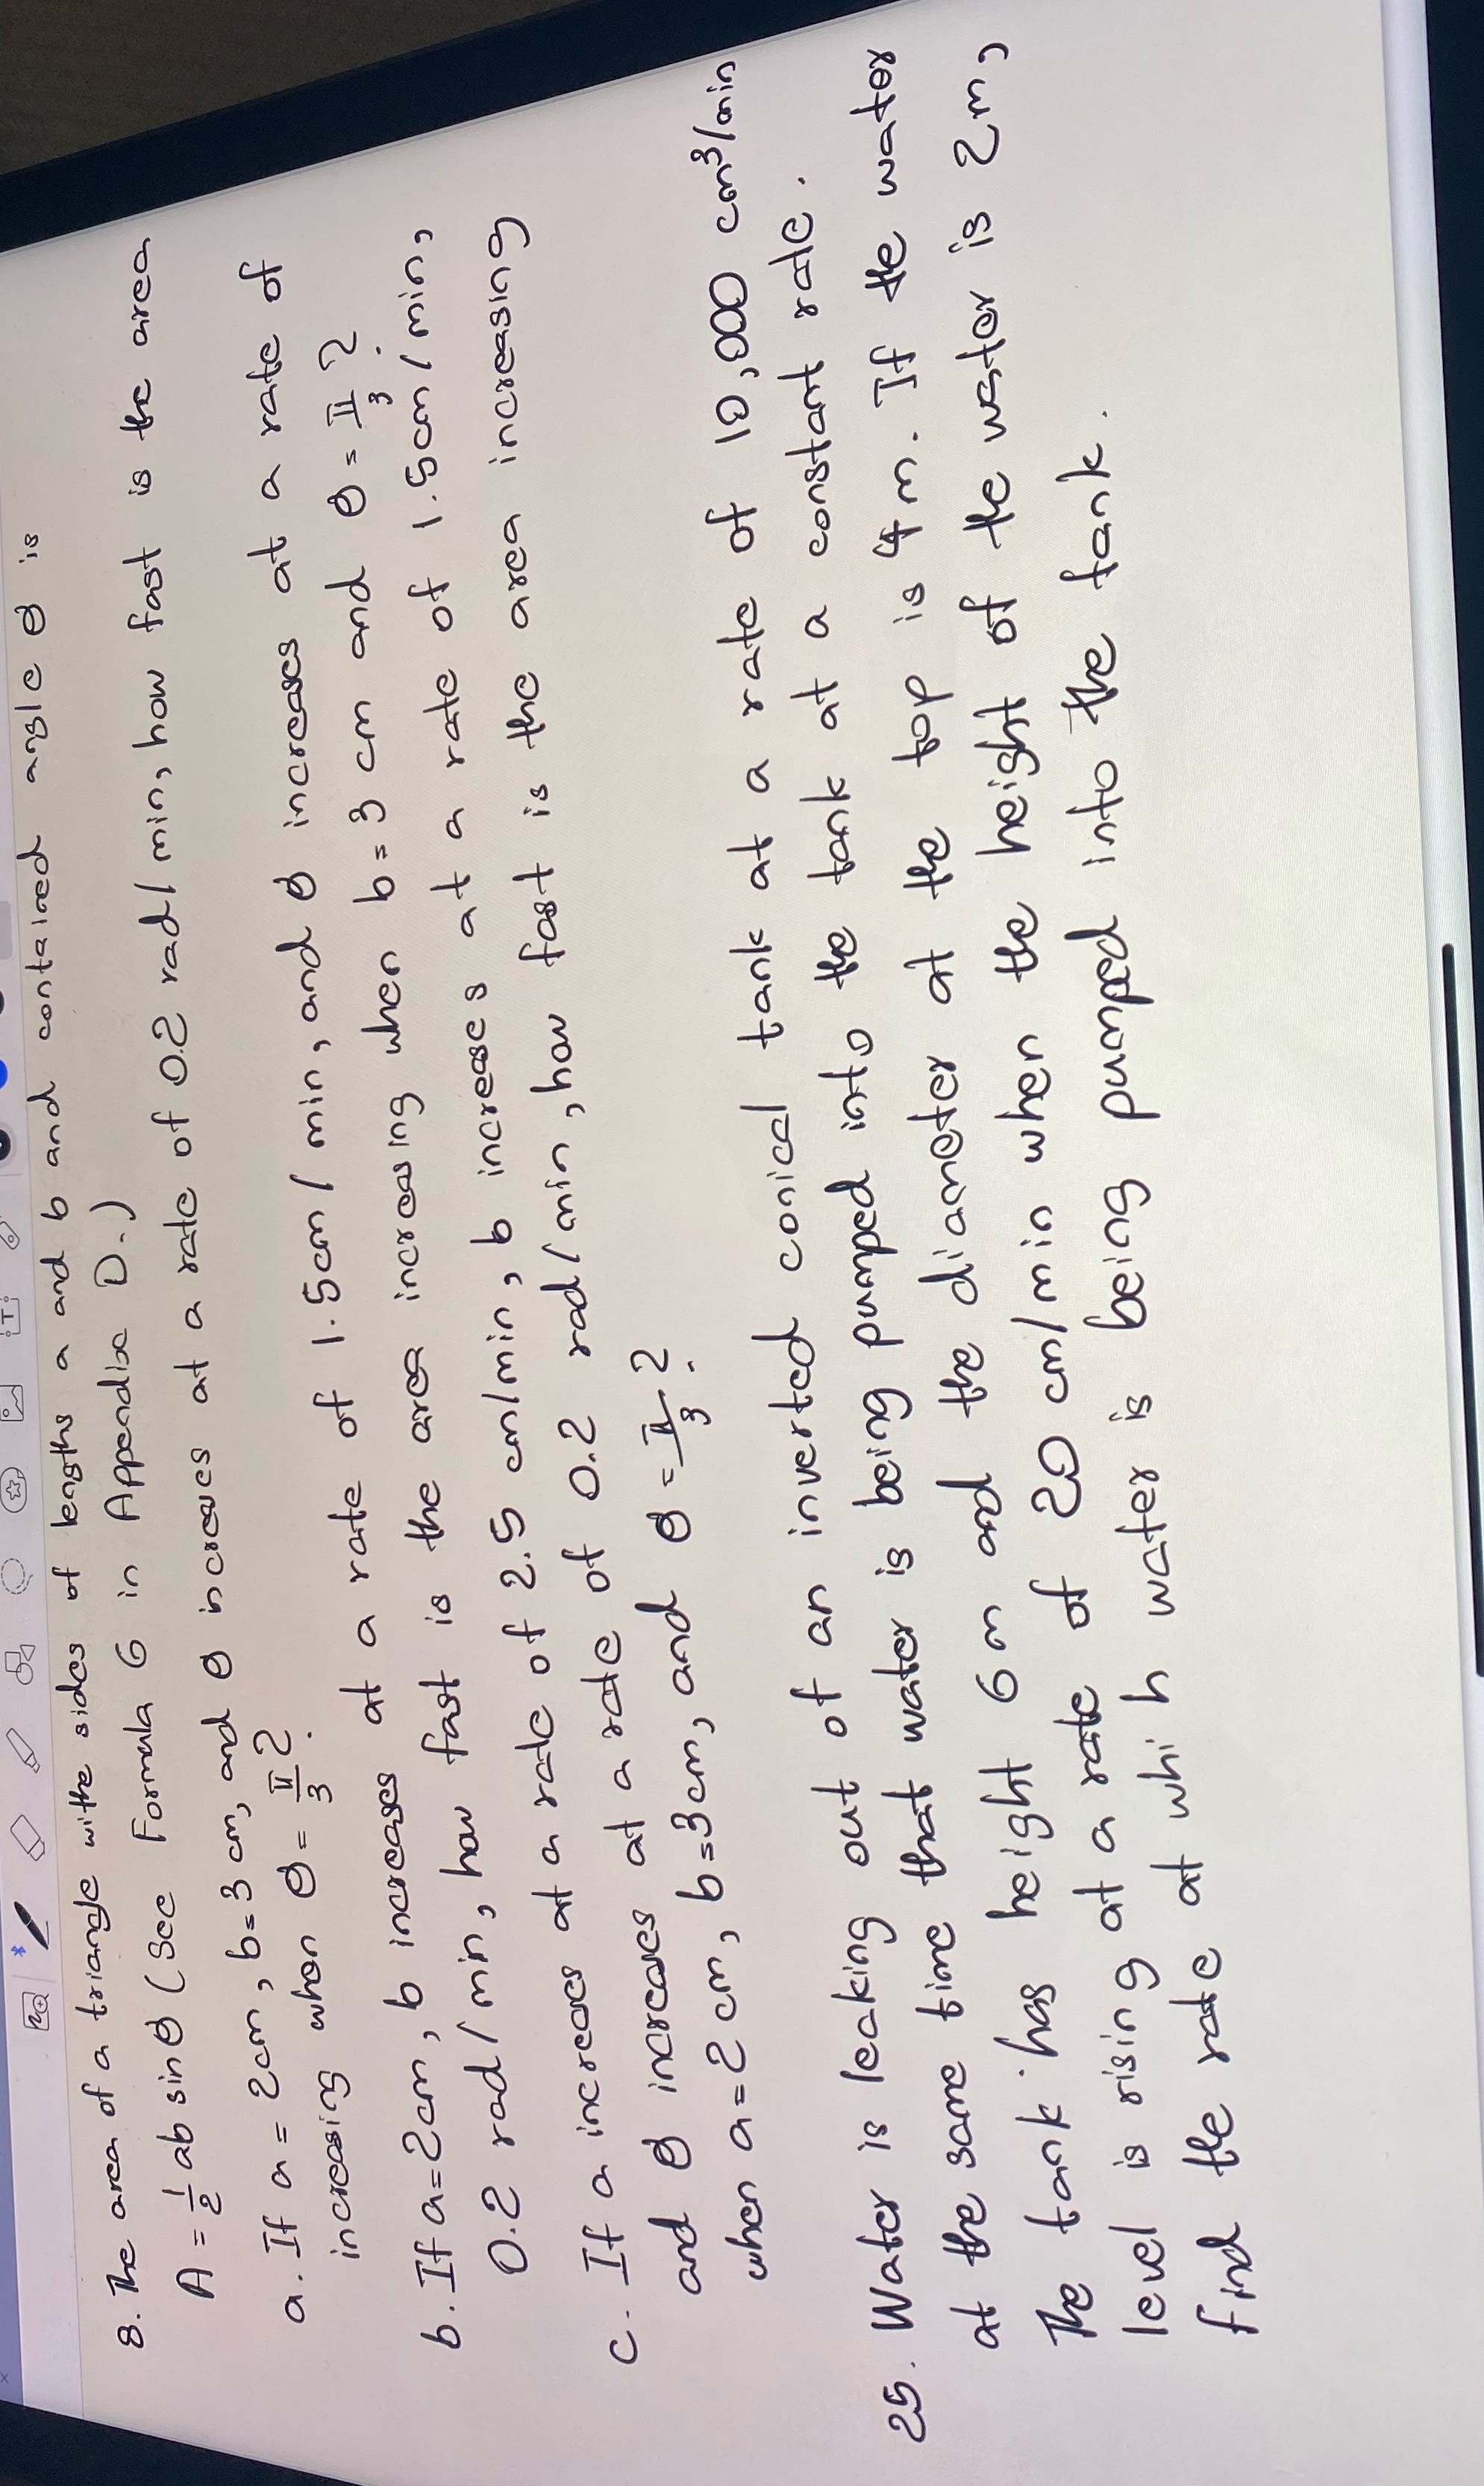 8. The area of a triangle withe sides of lengths a and b and contained angle θ is
A = 1/2 ab sin θ (See Formula 6 in Appendix D.)
a. If a = 2cm, b=3 cm, and θ increases at a rate of 0.2 rad/min, how fast is the area
increasing when θ = π/3?
b. If a=2cm, b increases at a rate of 1.5cm/min, and θ increases at a rate of
0.2 rad/min, how fast is the area increasing when b=3 cm and θ = π/3?
c. If a increases at a rate of 2.5 cm/min, b increases at a rate of 1.5cm/min,
and θ increases at a rate of 0.2 rad/min, how fast is the area increasing
when a=2 cm, b=3cm, and θ = π/3?
25. Water is leaking out of an inverted conical tank at a rate of 10,000 cm³/min
at the same time that water is being pumped into the tank at a constant rate.
The tank has height 6 m and the diameter at the top is 4 m. If the water
level is rising at a rate of 20 cm/min when the height of the water is 2 m,
find the rate at whi h water is being pumped into the tank.